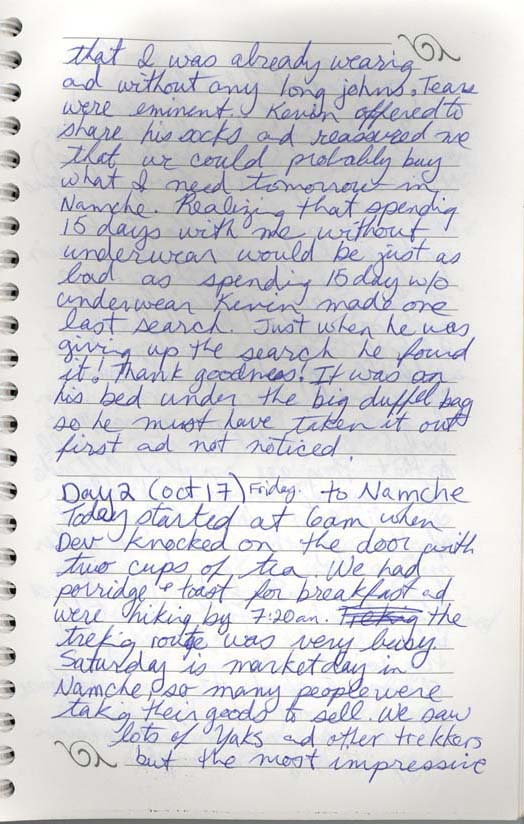 that I was already wearig
ad without any long johns. Tears
were eminent. Kevin offered to
share his socks ad reassured me
that we could probably buy
what I need tomorrow in
Namche. Realizing that spendig
15 days with me without
underwear would be just as
bad as spending 15 day w/o
underwear Kevin made one
last search. Just when he was
giving up the search he found
it! Thank goodness! It was on
his bed under the big duffel bag
so he must have taken it out
first ad not noticed.
Day 2 (Oct 17) Friday. to Namche
Today started at 6am when
Dev knocked on the door with
two cups of tea. We had
porridge & toast for breakfast ad
were hiking by 7:20am. the
trekig route was very busy.
Saturday is market day in
Namche, so many people were
takig their goods to sell. We saw
lots of Yaks ad other trekkers
but the most impressive